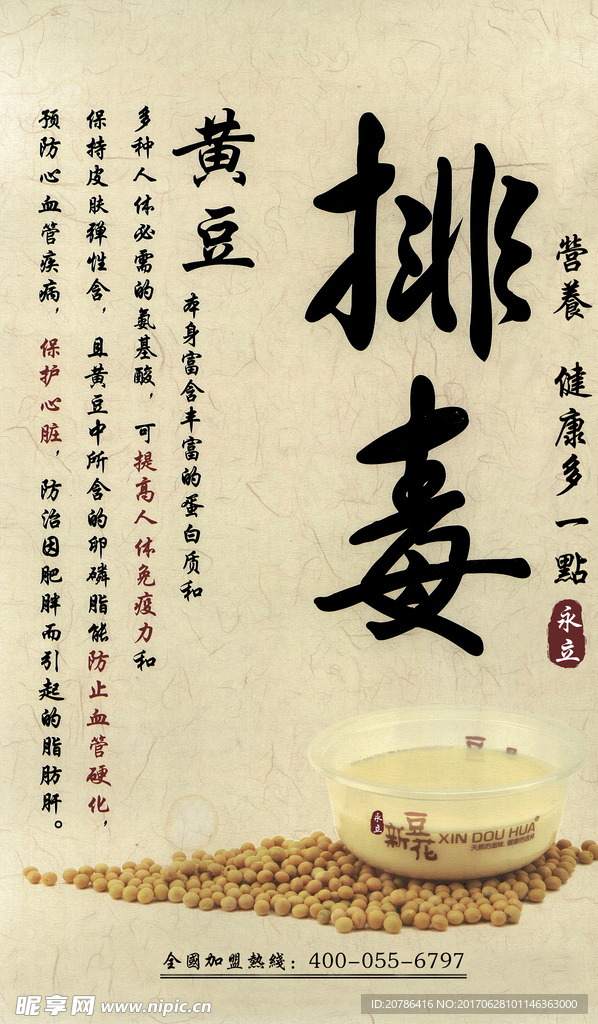 營養 健康多一點
永立
排毒
黄豆 本身富含丰富的蛋白质和
多种人体必需的氨基酸，可提高人体免疫力和
保持皮肤弹性含，且黄豆中所含的卵磷脂能防止血管硬化，
预防心血管疾病，保护心脏，防治因肥胖而引起的脂肪肝。
永立
新豆花
XIN DOU HUA®
全國加盟热綫：400-055-6797
昵享网 www.nipic.cn
ID:20786416 NO:20170628101146363000